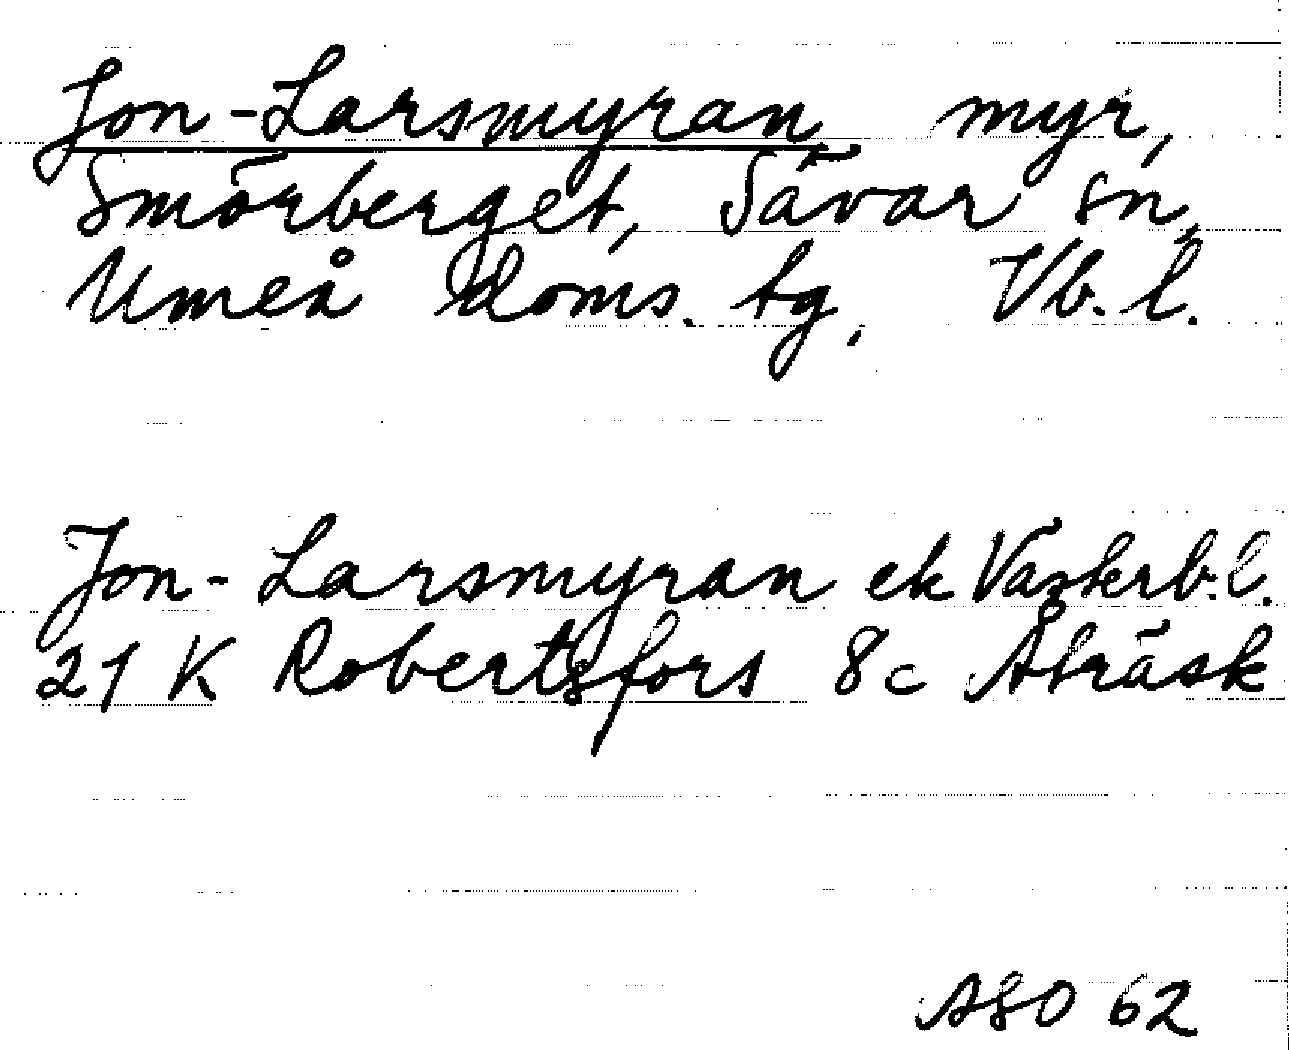 Jon-Larsmyran, myr,
Smörberget, Sävar sn,
Umeå doms. tg, Vb. l.
Jon-Larsmyran ek Västerb. l.
21 K Robertsfors 8c Åträsk
ASO 62